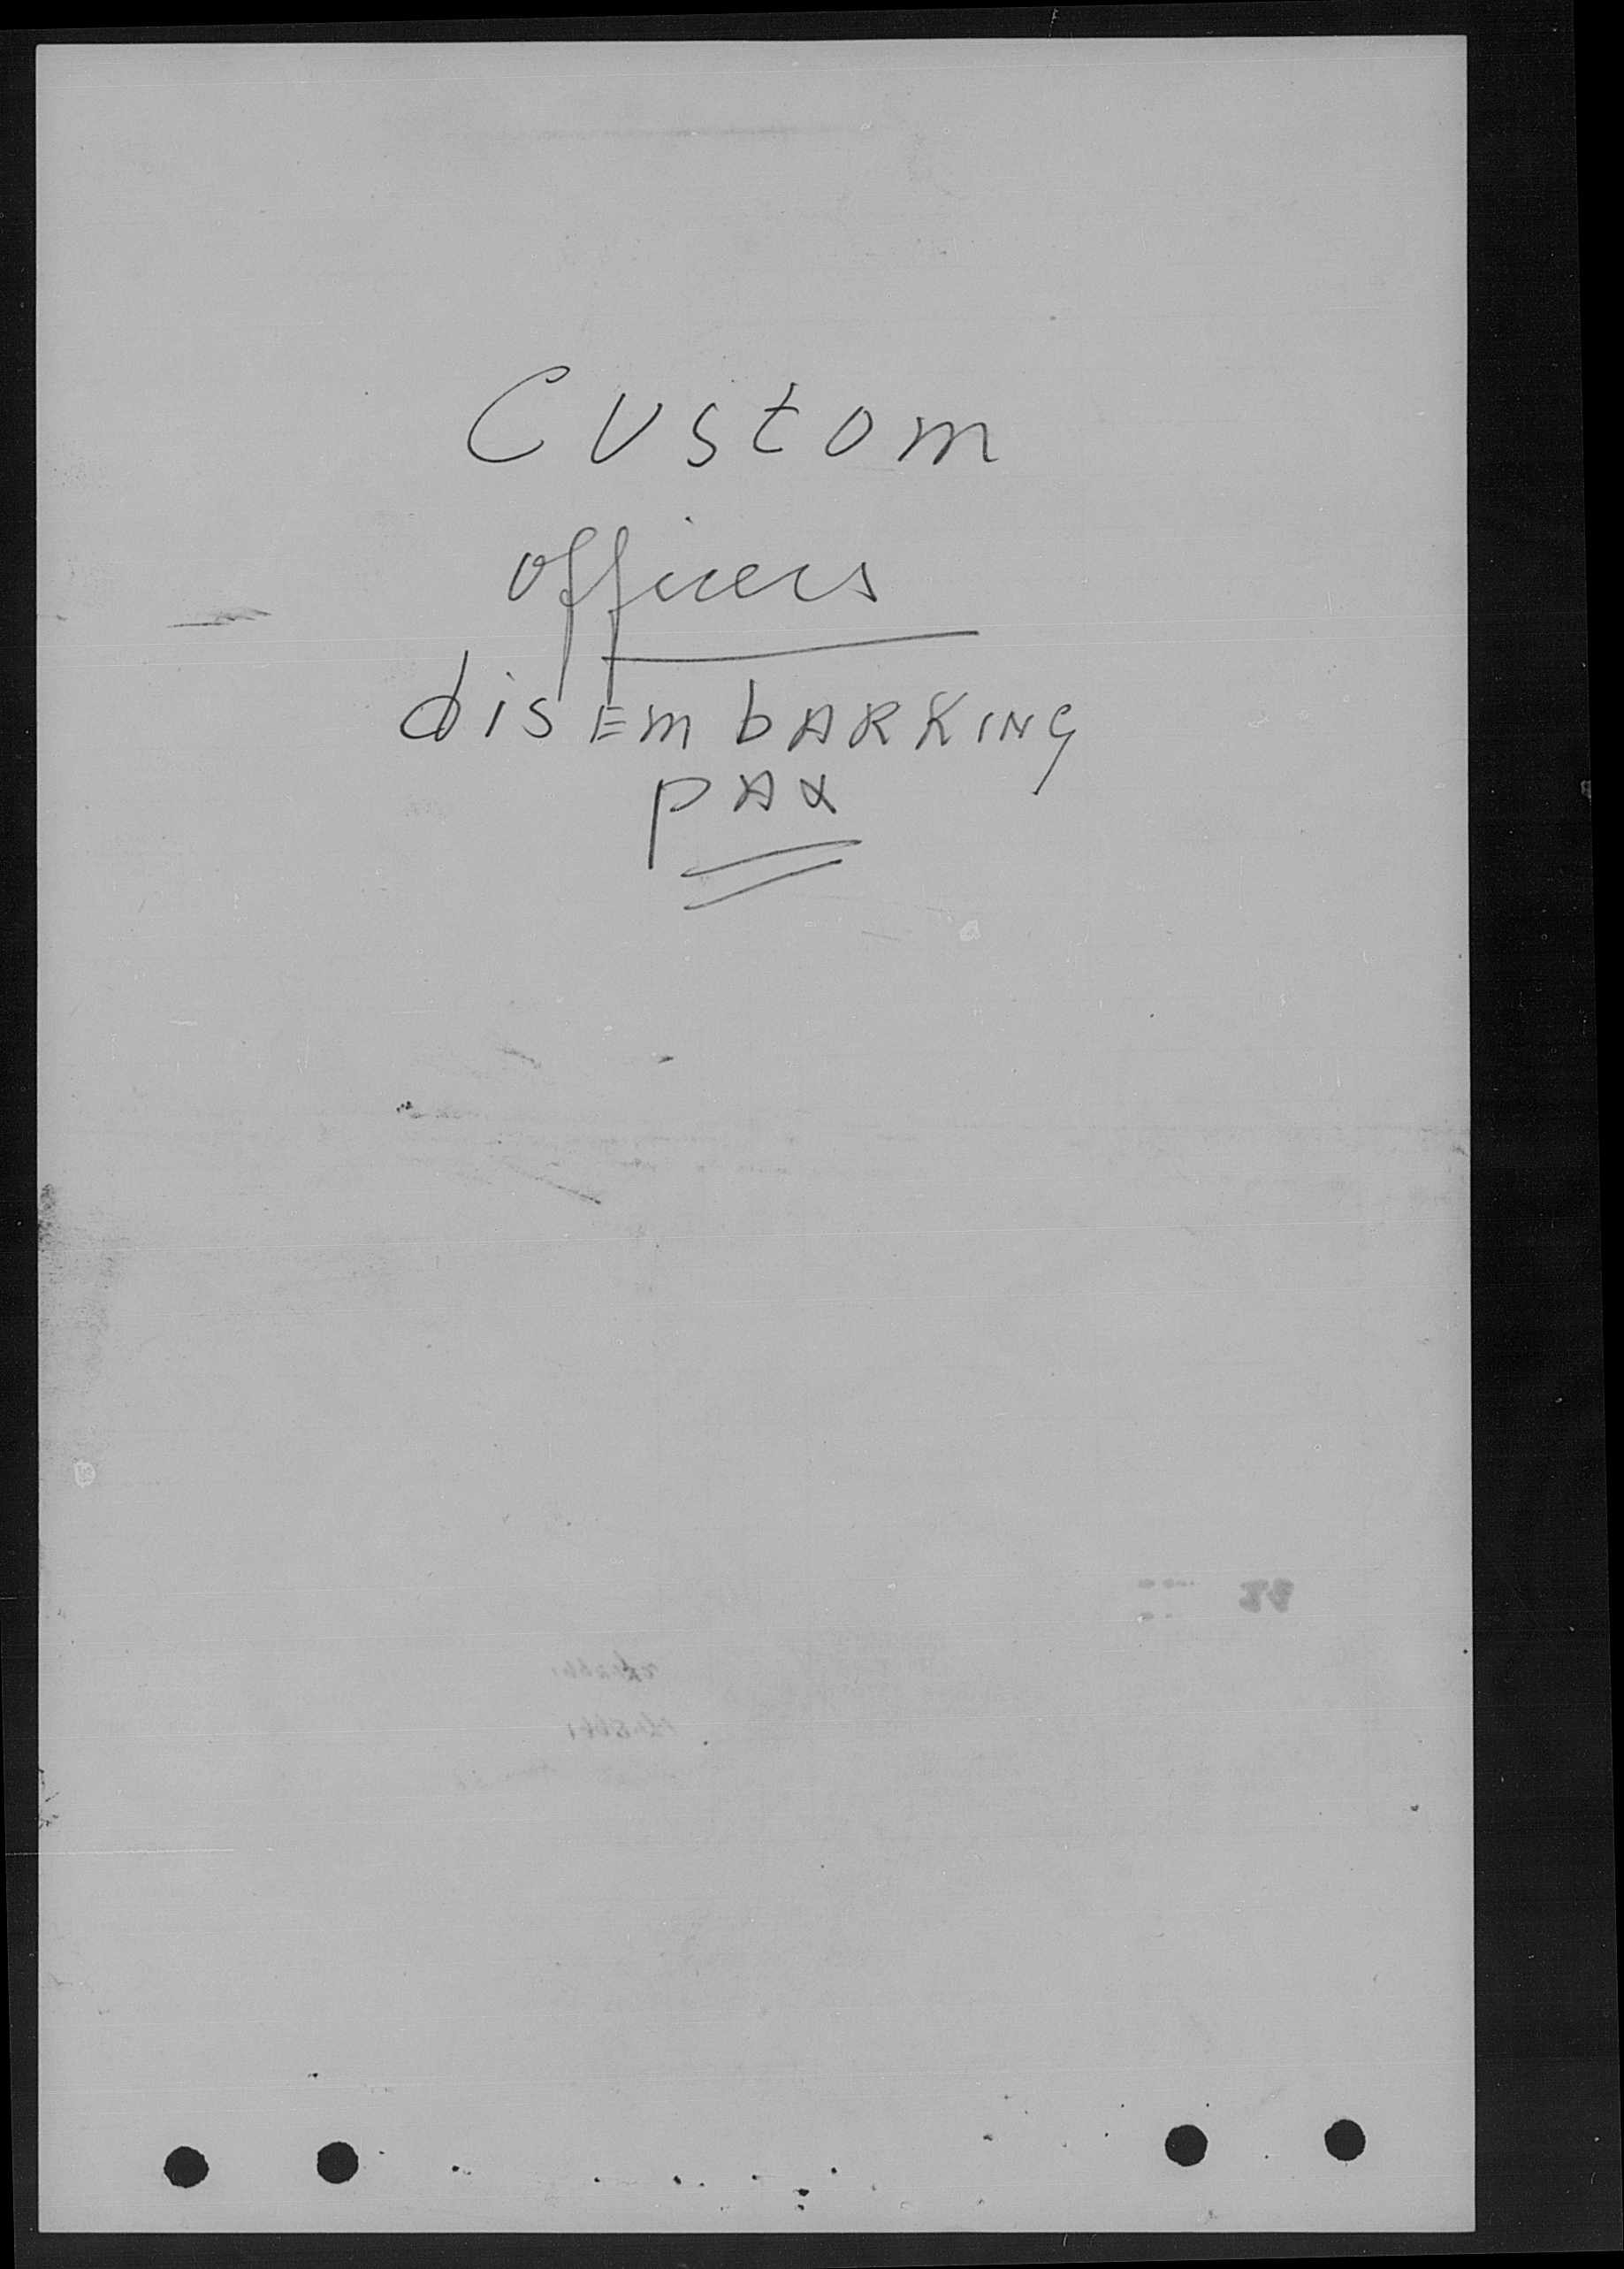 Custom
officers
disEmbARKING
pAx